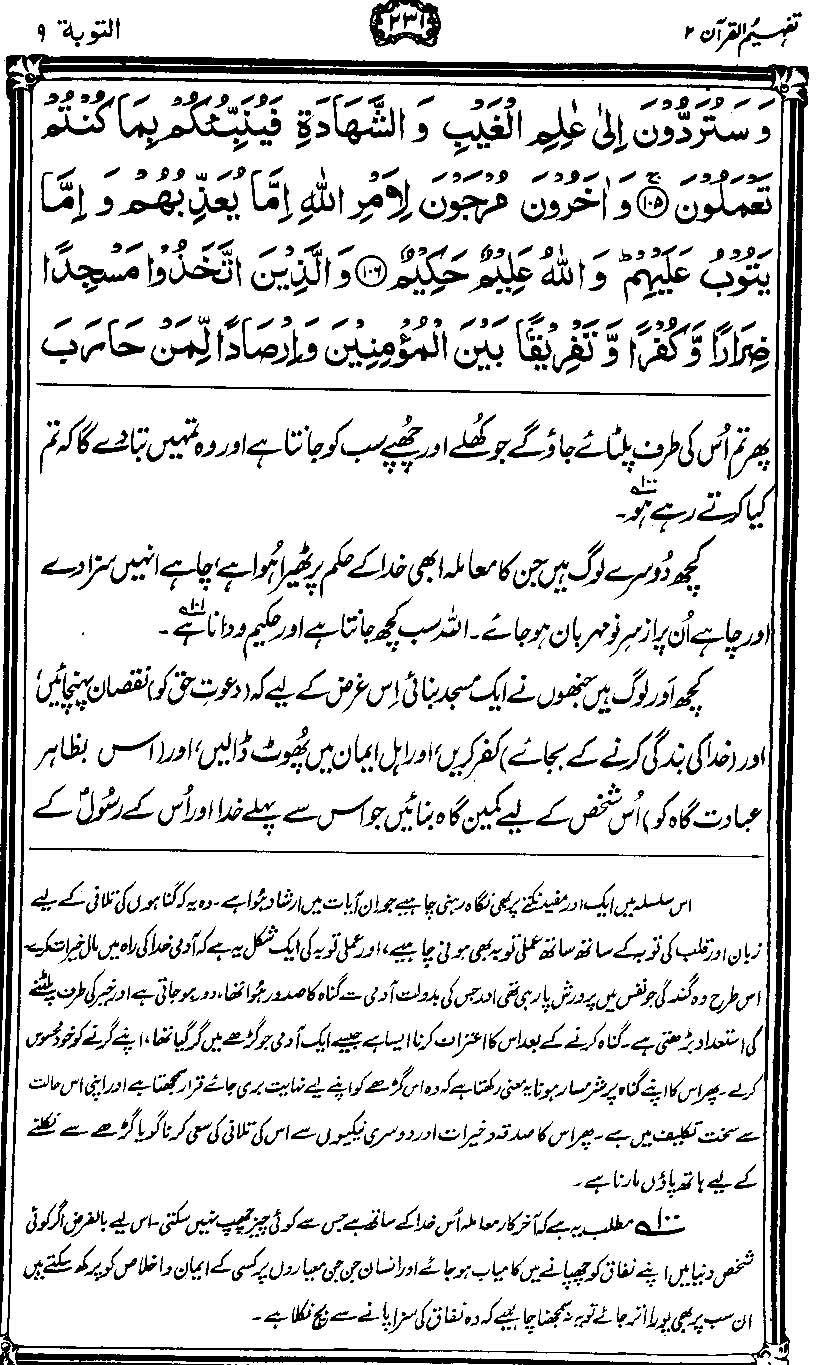 تفہیم القرآن ۲
۲۳۱
التوبة ۹
وَسَتُرَدُّوْنَ اِلٰى عٰلِمِ الْغَيْبِ وَالشَّهَادَةِ فَيُنَبِّئُكُمْ بِمَا كُنْتُمْ
تَعْمَلُوْنَ ۚ﴿۱۰۵﴾ وَاٰخَرُوْنَ مُرْجَوْنَ لِاَمْرِ اللّٰهِ اِمَّا يُعَذِّبُهُمْ وَاِمَّا
يَتُوْبُ عَلَيْهِمْ ؕ وَاللّٰهُ عَلِيْمٌ حَكِيْمٌ ﴿۱۰۶﴾ وَالَّذِيْنَ اتَّخَذُوْا مَسْجِدًا
ضِرَارًا وَّكُفْرًا وَّتَفْرِيْقًۢا بَيْنَ الْمُؤْمِنِيْنَ وَاِرْصَادًا لِّمَنْ حَارَبَ
پھر تم اُس کی طرف پلٹائے جاؤ گے جو کھُلے اور چھُپے سب کو جانتا ہے اور وہ تمہیں بتا دے گا کہ تم
کیا کرتے رہے ہو۔ ۱۰۰
کچھ دُوسرے لوگ ہیں جن کا معاملہ ابھی خدا کے حکم پر ٹھیرا ہُوا ہے، چاہے انہیں سزا دے
اور چاہے اُن پر از سرِ نو مہربان ہو جائے۔ اللہ سب کچھ جانتا ہے اور حکیم و دانا ہے۔ ۱۰۱
کچھ اور لوگ ہیں جنھوں نے ایک مسجد بنائی اِس غرض کے لیے کہ (دعوتِ حق کو) نقصان پہنچائیں،
اور (خدا کی بندگی کرنے کے بجائے) کفر کریں، اور اہلِ ایمان میں پھُوٹ ڈالیں، اور (اس بظاہر
عبادت گاہ کو) اُس شخص کے لیے کمین گاہ بنائیں جو اس سے پہلے خدا اور اُس کے رسُولؐ کے
اس سلسلہ میں ایک اور مفید نکتے پر بھی نگاہ رہنی چاہیے جو ان آیات میں ارشاد ہوا ہے۔ وہ یہ کہ گناہوں کی تلافی کے لیے
زبان اور قلب کی توبہ کے ساتھ ساتھ عملی توبہ بھی ہونی چاہیے، اور عملی توبہ کی ایک شکل یہ ہے کہ آدمی خدا کی راہ میں مال خیرات کرے۔
اس طرح وہ گندگی جو نفس میں پرورش پا رہی تھی اور جس کی بدولت آدمی سے گناہ کا صدور ہُوا تھا، دور ہو جاتی ہے اور خیر کی طرف پلٹنے
کی استعداد بڑھتی ہے۔ گناہ کرنے کے بعد اس کا اعتراف کرنا ایسا ہے جیسے ایک آدمی جو گڑھے میں گر گیا تھا، اپنے گرنے کو خود محسوس
کرلے۔ پھر اس کا اپنے گناہ پر شرمسار ہونا یہ معنی رکھتا ہے کہ وہ اس گڑھے کو اپنے لیے نہایت بری جائے قرار سمجھتا ہے اور اپنی اس حالت
سے سخت تکلیف میں ہے۔ پھر اس کا صدقہ و خیرات اور دوسری نیکیوں سے اس کی تلافی کی سعی کرنا گویا گڑھے سے نکلنے
کے لیے ہاتھ پاؤں مارنا ہے۔
۱۰۰ مطلب یہ ہے کہ آخرکار معاملہ اُس خدا کے ساتھ ہے جس سے کوئی چیز چھپ نہیں سکتی۔ اس لیے بالفرض اگر کوئی
شخص دنیا میں اپنے نفاق کو چھپانے میں کامیاب ہو جائے اور انسان جن جن معیاروں پر کسی کے ایمان و اخلاص کو پرکھ سکتے ہیں
ان سب پر بھی پورا اتر جائے تو یہ نہ سمجھنا چاہیے کہ وہ نفاق کی سزا پانے سے بچ نکلا ہے۔